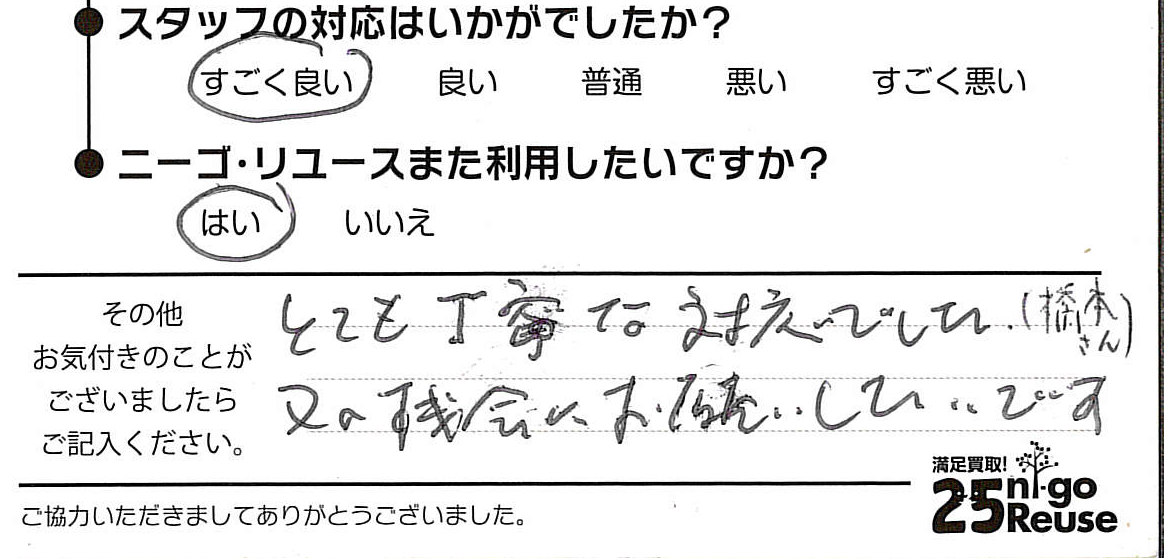 スタッフの対応はいかがでしたか？
すごく良い 良い 普通 悪い すごく悪い
ニーゴ・リユースまた利用したいですか？
はい いいえ
その他
お気付きのことが
ございましたら
ご記入ください。
とても丁寧な対応でした.(橋本さん)
又の機会にお願いしたいです
満足買取!
25 ni-go Reuse
ご協力いただきましてありがとうございました。